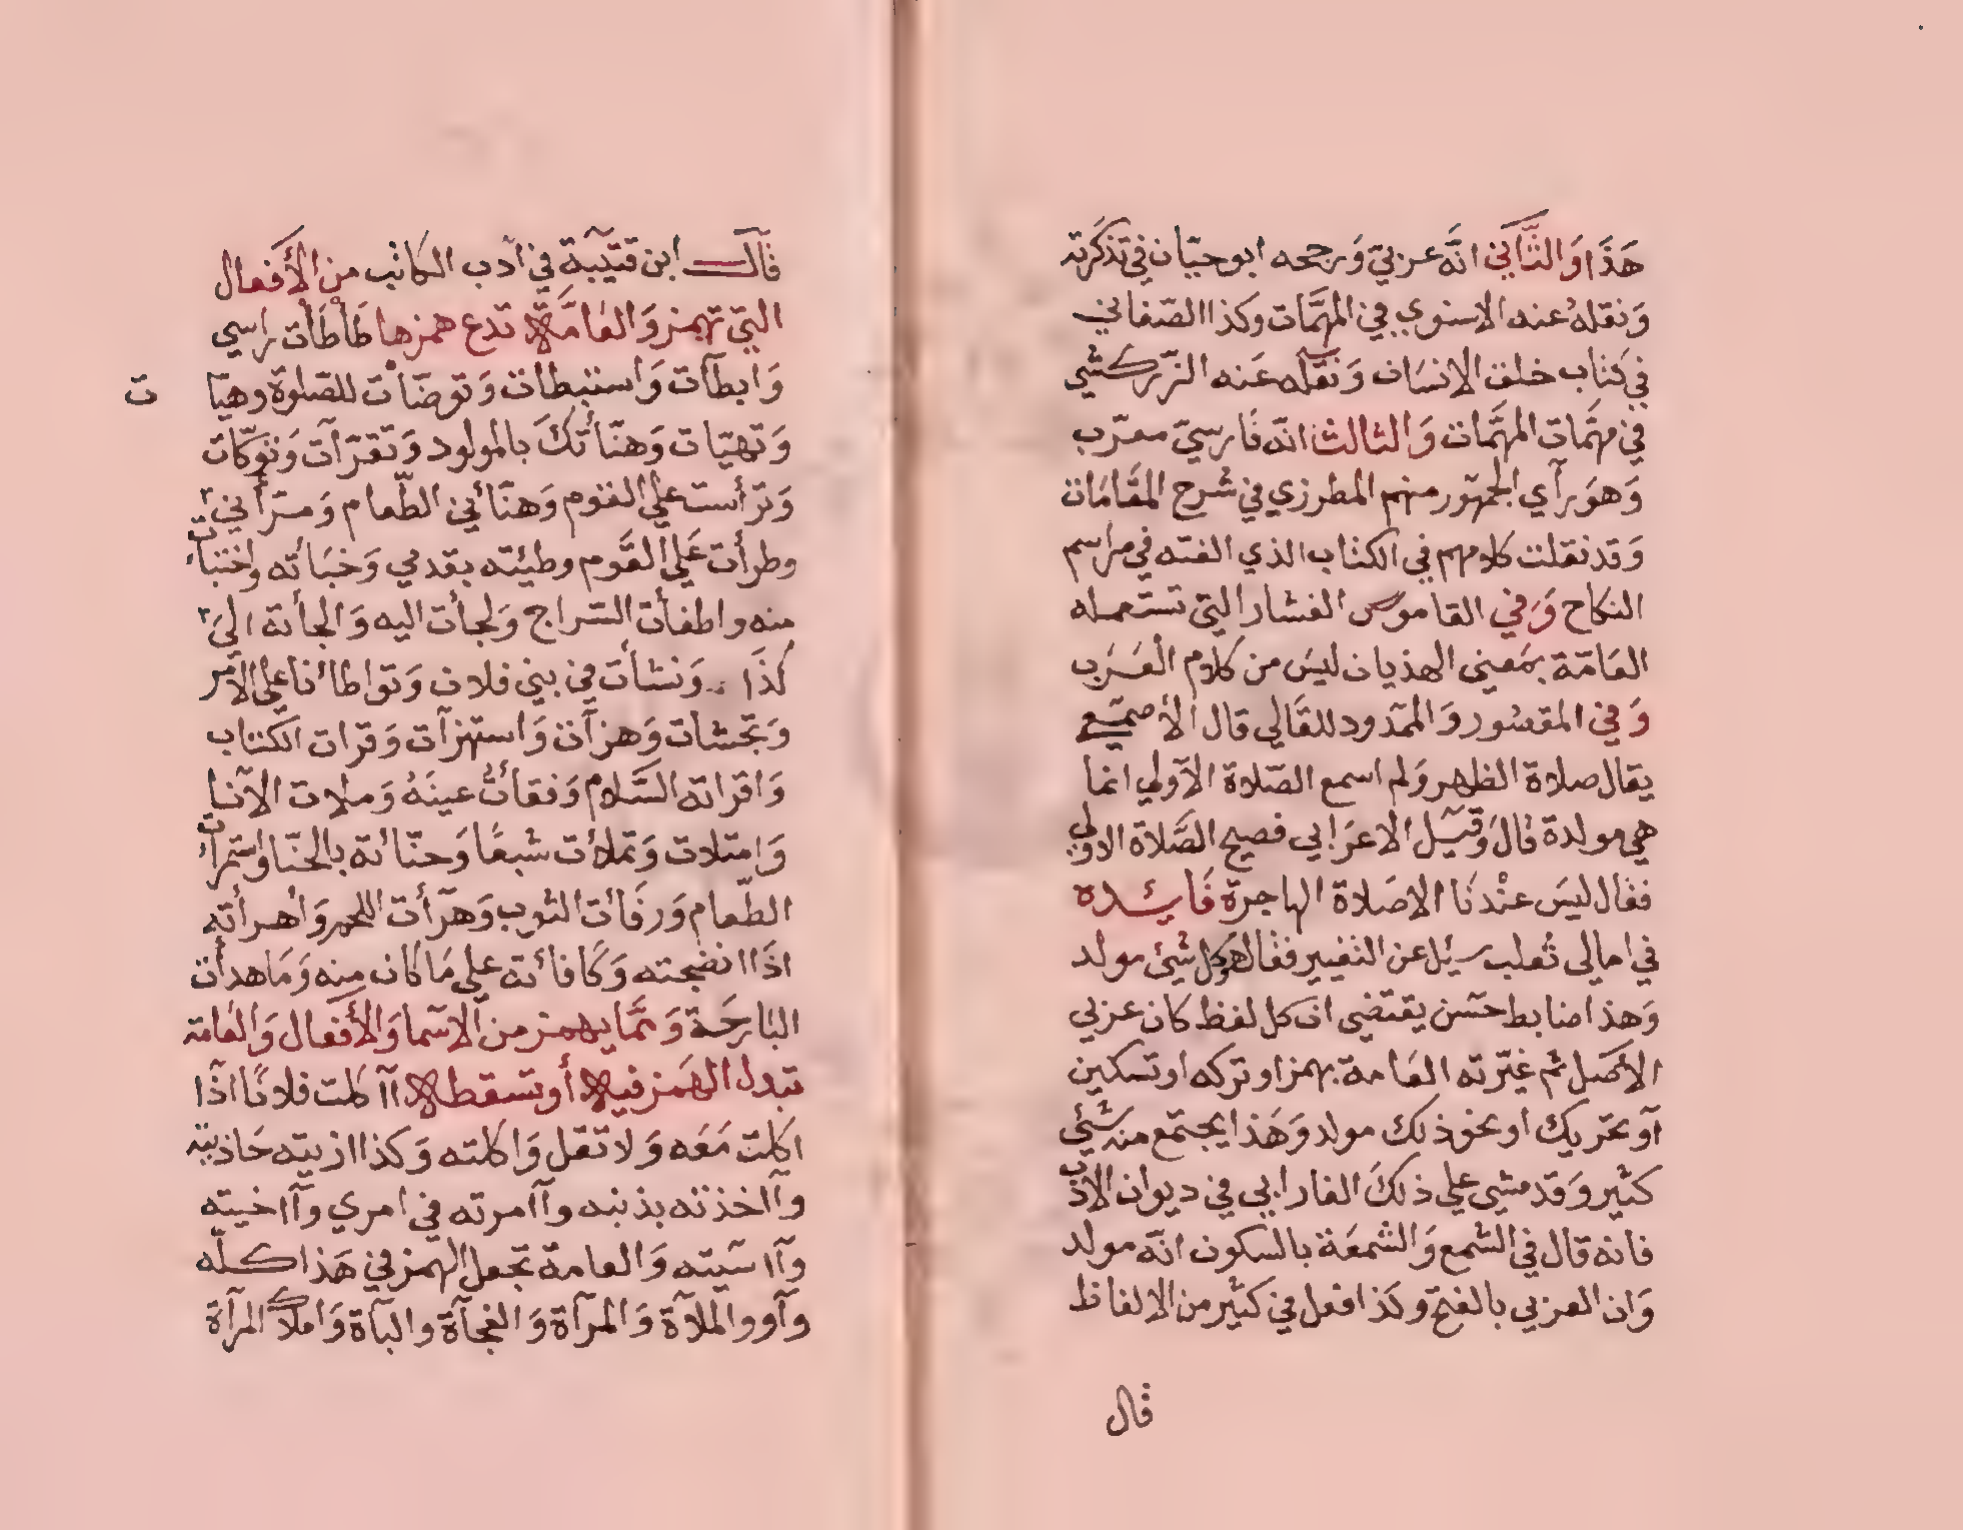 هَذَا وَالثَّاني انَّه عربيّ وَرجحه ابوحيّان في تذكرته
وَنقلهُ عنه الاسنوي في المهمَّات وكذا الصّغاني
في كتاب خلق الانسَان وَنقله عَنه الزّركشي
في مهمَّات المهمَّات وَالثالث انّه فَارسيّ معرّب
وَهوَ رَأي الجمهور منهم المطرزي في شرح المقَامَات
وَقد نقلت كلامهم في الكتاب الذي الفته في مراسم
النكاح وَفي القاموس الفشار التي تستعمله
العَامّة بمَعني الهذيان ليسَ من كلام العَرَب
وَفي المقصُور وَالممدود للقَالي قال الأصمَعي
يقال صلاة الظهر وَلم اسمع الصّلاة الأولي انما
هي مولدة قالَ وَقيَل لاعرَابي فصيح الصَّلاة الاولي
فقال ليسَ عنْدنَا الاصَلاة الهاجرَة فَائده
في امالي ثعلب سئل عن التغيير فقال هو كل شئ مولد
وَهذا ضابط حسَن يقتضي ان كل لفظ كان عربي
الأصَل ثم غيّرته العَامة بهمز او تركه او تسكين
أو تحريك او نحو ذلك مولد وَهَذا يجتمع منه شَئ
كثير وَقد مشي علي ذلكَ الفارابي في ديوان الادب
فانه قال في الشمع وَالشمعَة بالسكون انّه مولد
وَان العربي بالفتح وكذا فعل في كثير من الالفاظ
قال
قالــ ابن قتيبَة في أدب الكاتب من الأفعال
التي تهمز وَالعَامَّة تدع همزها طَأطَأت راسي
وَابطأت وَاستبطات وَتوضّأت للصّلوة وهيّا
ت
وَتهيّات وَهنّأتكَ بالمولود وَتقرّأت وَتوكّات
وَترأست علي القوم وَهنّأني الطّعام وَمرَأني
وطرأت عَلي القَوم وطئته بقدمي وَخبَأته واختبأت
منه واطفأت السّراج وَلجأت اليه وَالجأته الي
كذَا وَنشأت في بني فلان وَتواطأنا علي الأمر
وَتجشأت وَهزأت وَاستهزأت وَقرات الكتاب
وَاقراته السَّلام وَفقأتُ عينَهُ وَملات الأنا
وَامتلات وَتملأت شبعًا وَحنّأته بالحنّا واستمرأت
الطّعام وَرفَأت الثوب وَهرّأت اللحم وَاهرأته
اذَا انضجته وَكَافأته علي مَا كان منه وَمَا هدأت
البَارحَة وَممّا يهمز من الاسَما وَالأفعَال وَالعَامة
تبدل الهَمز فيه أو تسقطه آاكلت فلانًا اذَا
اكلت مَعَه وَلا تقل وَاكلته وَكذا ازيته حَاذيته
وآاخذته بذنبه وآامرته في امري وآاخيته
وآاسَيته وَالعامة تجعل الهمز في هَذا كــله
وآو والملآة وَالمرآة وَالفجآة والبآة وَاملاك المرآة